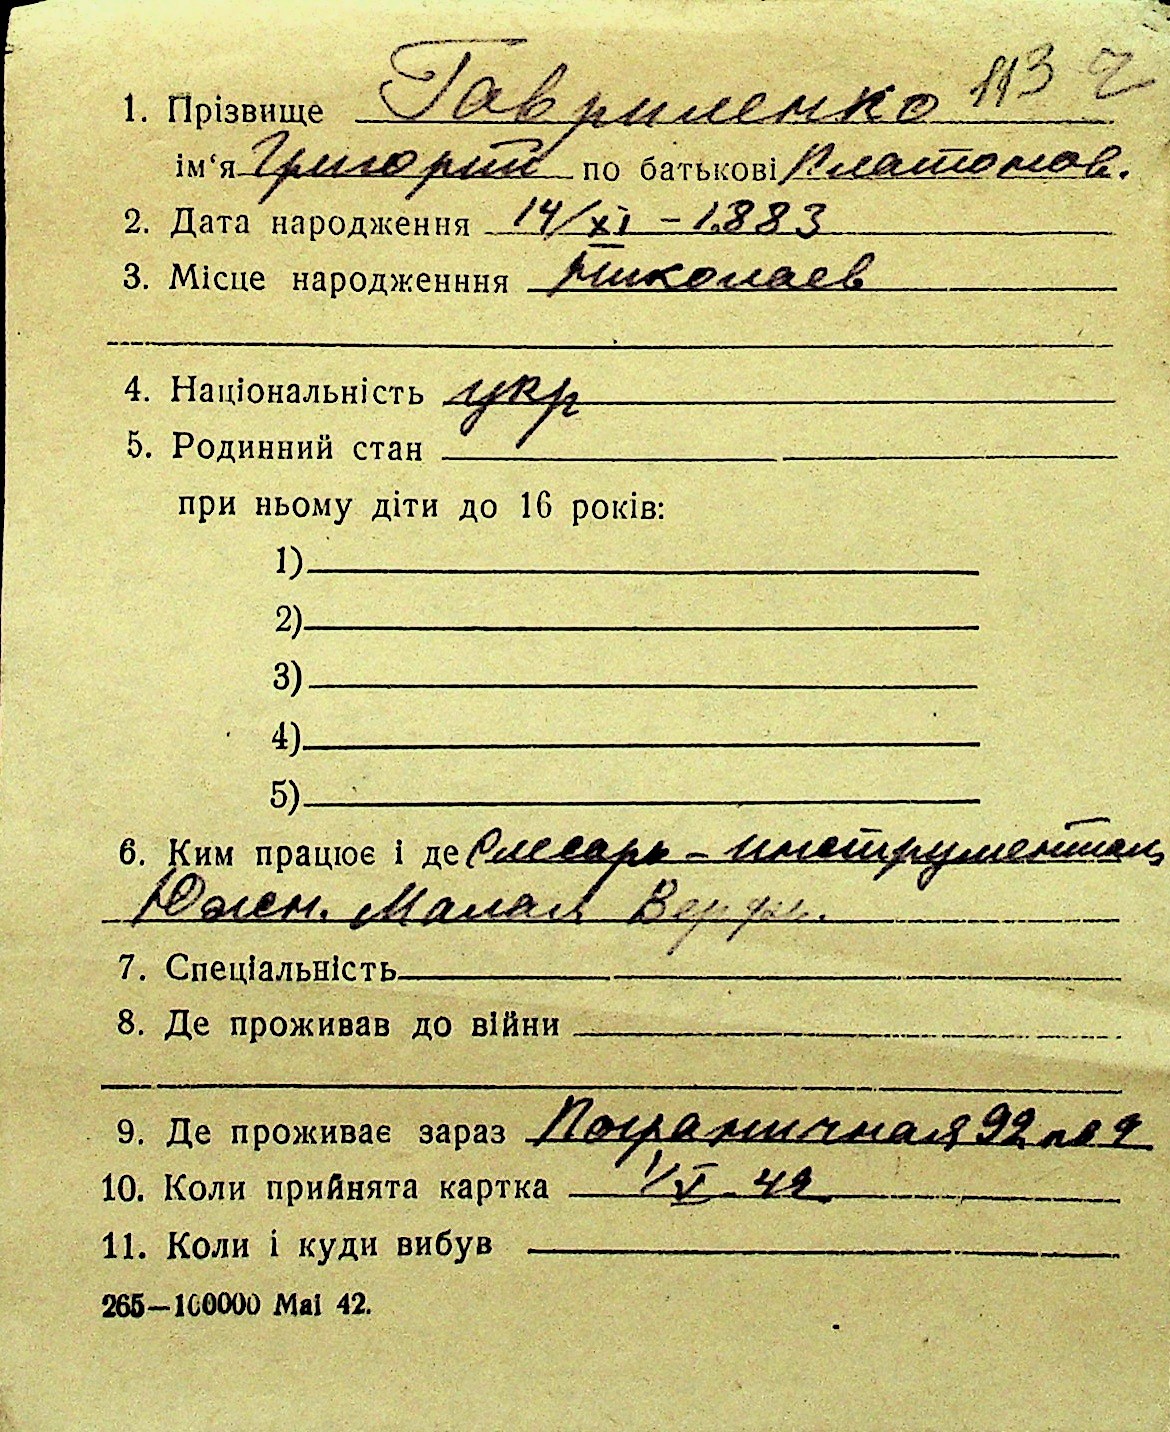 113
1. Прізвище Гавриленко
ім‘я Григорий по батькові Платонов.
2. Дата народження 14/XI – 1883
3. Місце народженння Николаев
4. Національність укр
5. Родинний стан
при ньому діти до 16 років:
1)
2)
3)
4)
5)
6. Ким працює і де Слесарь – инструментальщ
Южн. Малая Верфь.
7. Спеціальність
8. Де проживав до війни
9. Де проживає зараз Пограничная 92
10. Коли прийнята картка 1/V 42
11. Коли і куди вибув
265—100000 Mai 42.